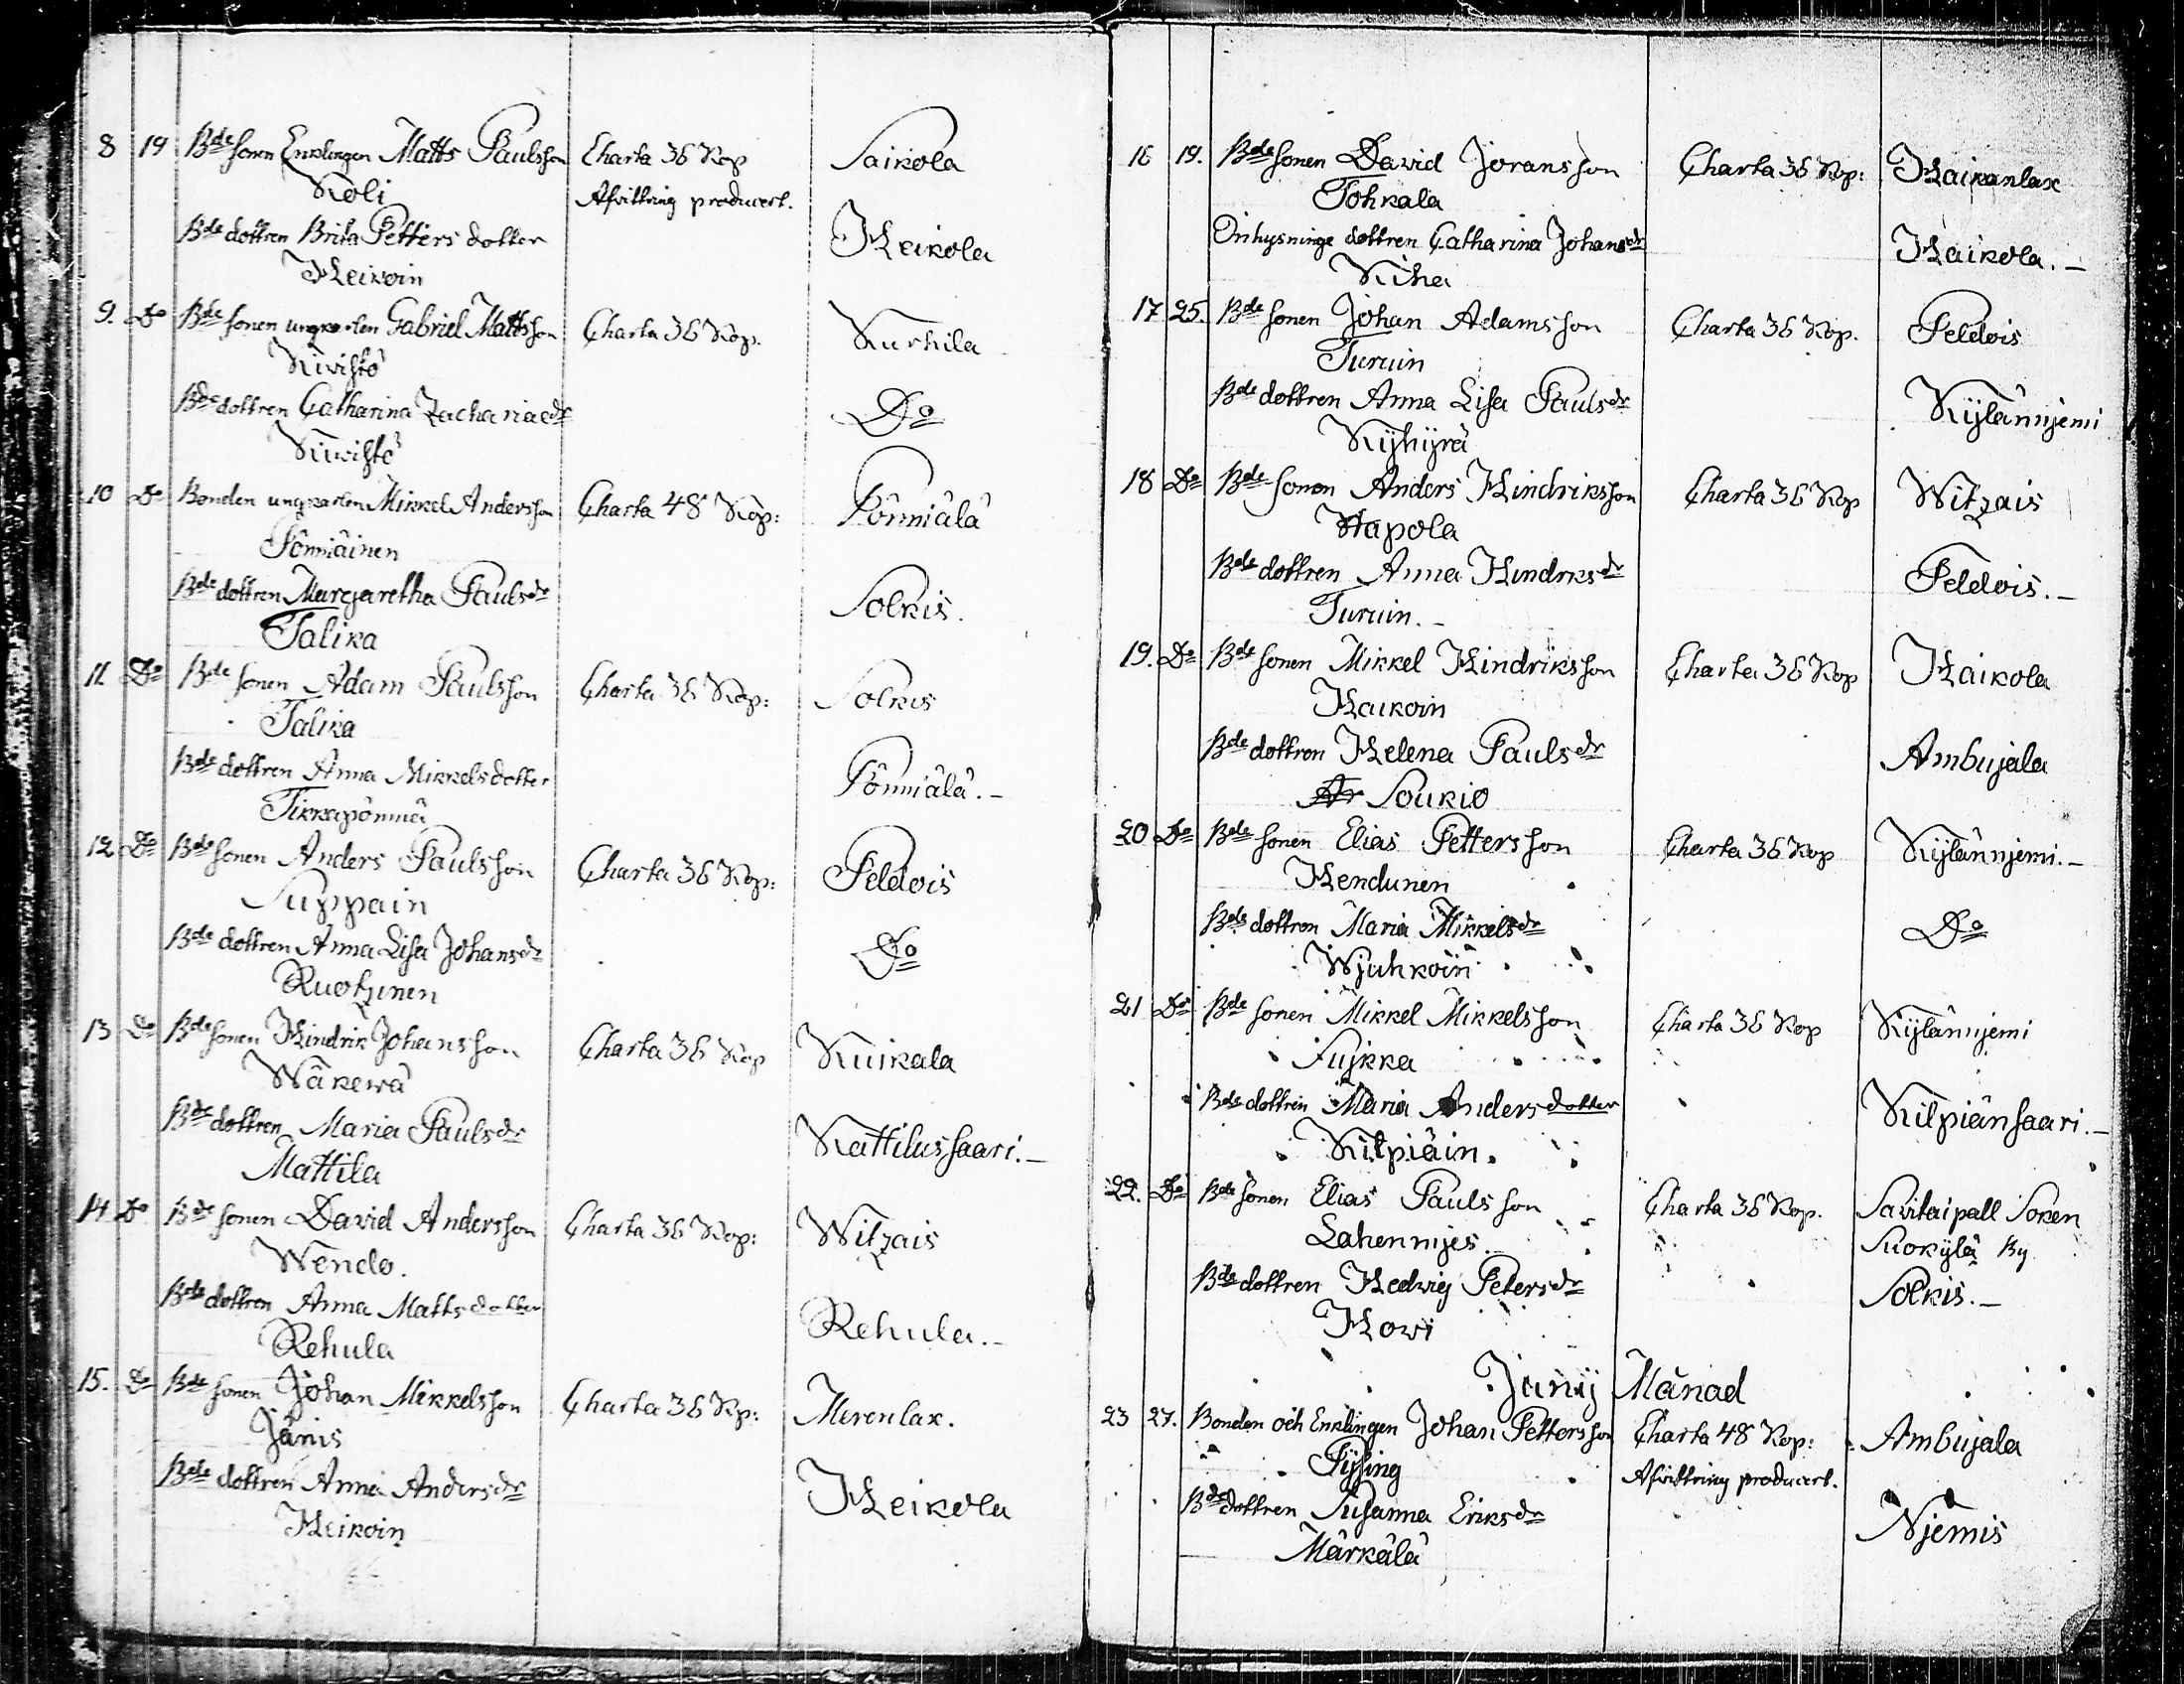 8 19 Bde sonen Enklingen Matts Paulsson Charta 36 Kop Saikola
Koli Afvittring producert.
Bde dottren Brita Petters dotter Heikola
Heikoin
9. Do Bde sonen ungkarlen Gabriel Mattsson Charta 36 Kop. Kurhila
Kiwistö
Bde dottren Catharina Zachariaedr Do
Kiwistö
10 Do Bonden ungkarlen Mikkel Andersson Charta 48 Kop: Pönniälä
Pönniäinen
Bde dottren Margaretha Paulsdr Solkis.
Talika
11 Do Bde sonen Adam Paulsson Charta 36 Kop: Solkis
Talika
Bde dottren Anna Mikkelsdotter Pönniälä.-
Tikkapönniä
12 Do Bde sonen Anders Paulsson Charta 36 Kop: Peldois
Suppain
Bde dottren Anna Lisa Johansdr Do
Ruotzinen
13 Do Bde sonen Hindrik Johansson Charta 36 Kop Kuikala
Wäkewä
Bde dottren Maria Paulsdr Kattilussaari.-
Mattila
14 Do Bde sonen David Andersson Charta 36 Kop: Witzais
Wendo.
Bde dottren Anna Mattsdotter Rehula.-
Rehula
15. Do Bde sonen Johan Mikkelsson Charta 36 Kp: Merenlax.
Jänis
Bde dottren Anna Andersdr Heikola
Heikoin
16 19. Bde sonen David Joransson Charta 36 Kop: Haikanlax
Tohkala
Inhysninge dottren Catharina Johansdr Haikola.-
Kiha
17 25. Bde sonen Johan Adamsson Charta 36 Kop. Peldois
Turuin
Bde dottren Anna Lisa Paulsdr Kylännjemi
Kyhyrä
18 Do Bde sonen Anders Hindriksson Charta 36 Kop Witzais
Hapola
Bde dottren Anna Hindrksdr Peldois.-
Turuin.-
19. Do Bde sonen Mikkel Hindriksson Charta 36 Kop Haikola
Haikoin
Bde dottren Helena Paulsdr Ambujala
Ar Soukio
20 Do Bde sonen Elias Pettersson Charta 36 Kop Kylännjemi.-
Hendunen
Bde dottren Maria Mikkelsdr Do
Wjuhkoin
21 Do Bde sonen Mikkel Mikkelsson Charta 36 Kop Kylännjemi
Sujkka
Bde dottren Maria Andersdotter Kilpiänsaari.-
Kilpiäin.
22. Do Bde sonen Elias Paulsson Charta 36 Kop. Savitaipall Soken
Lahennjes. Suokylä By
Bde dottren Hedwig Petersdr Solkis.-
Howi
Junij Månad
23 27. Bonden och Enklingen Johan Pettersson Charta 48 Kop: Ambujala
Pysing Afvittring producert.
Bde dottren Susanna Eriksdr Njemis
Märkälä